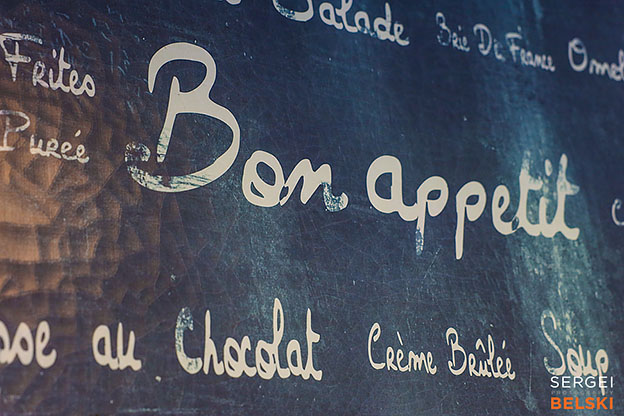 Salade
Brie Du France
Frites
Purée
Bon appetit
sse au Chocolat
Crème Brûlée
Soup
SERGEI
PHOTOGRAPHY
BELSKI